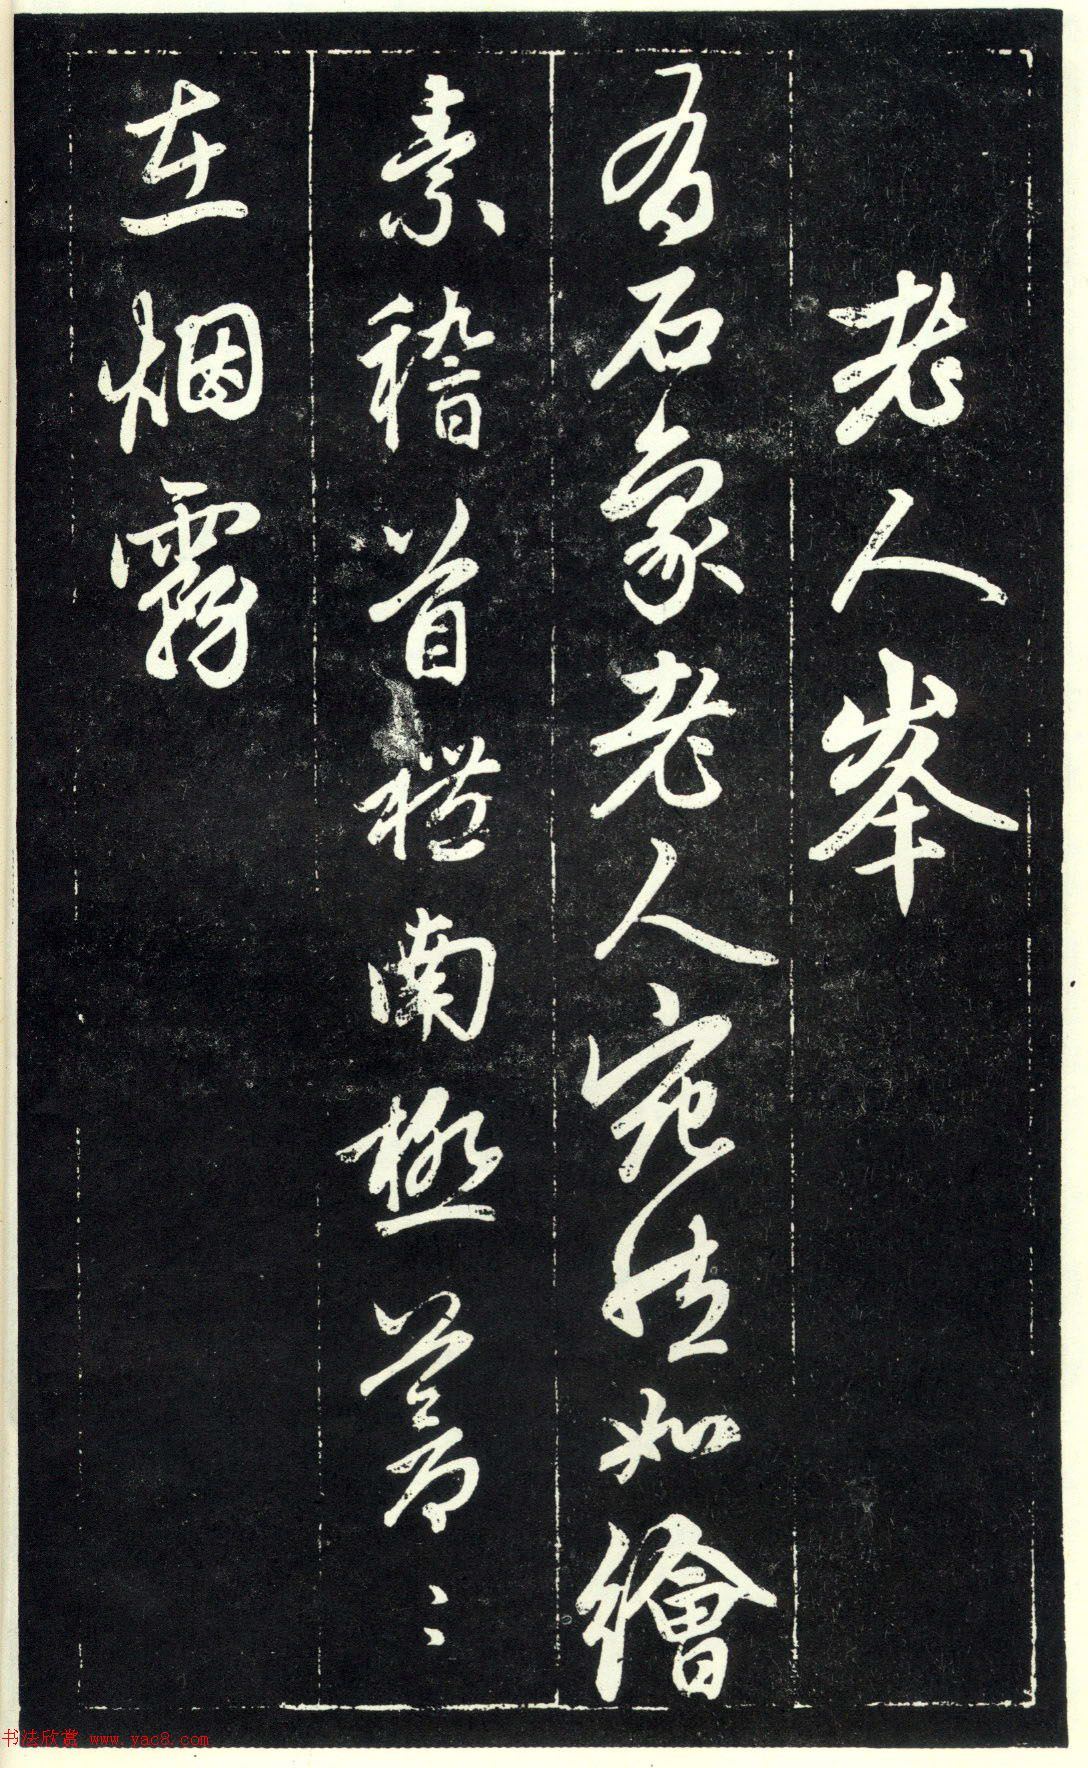 老人峯
有石象老人宛然如繪
素稽首禮南極蒼〻
在烟霧
书法欣赏 www.yac8.com